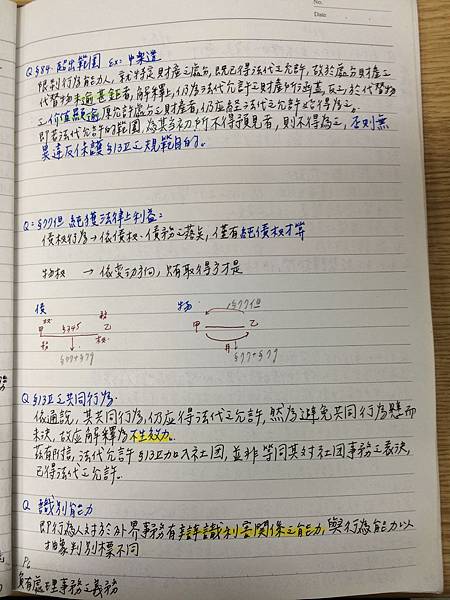 No.
Date
Q §84. 超出範圍 ex: 中樂透
限制行為能力人, 就特定財產之處分, 既已得法代之允許, 故於處分財產之
代替物未逾甚鉅者, 解釋上, 仍為法代允許之財產所涵蓋, 反之, 於代替物
之價值顯逾原允許處分之財產者, 仍應經法代之允許始得為之。
即若法代允許的範圍, 為其當初所不得預見者, 則不得為之, 否則無
異違反保護§13Ⅱ之規範目的。
Q: §77但 純獲法律上利益:
債權行為→依債權、債務之落矣, 僅有純債權才算
物權 → 依變動方向, 只有取得方才是
債 物.
§77但
甲 §345 乙 甲 乙
權
§77+§79
§77+§79
Q §13Ⅱ之共同行為.
依通說, 其共同行為, 仍應得法代之允許, 然為避免共同行為懸而
未決, 故應解釋為不生效力。
法代允許§13Ⅱ加入社團, 並非等同其對社團事務之表決,
已得法代之允許。
Q 識別能力
即行為人對於外界事務有識利害關係之能力, 與行為能力以
抽象判別標不同
負有處理事務之義務